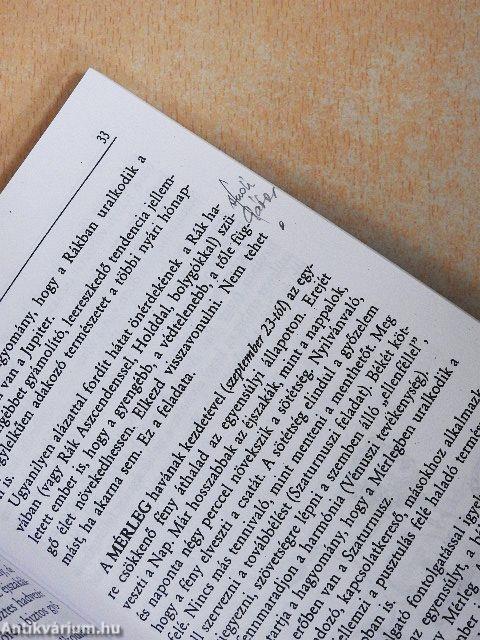 33
agyomány, hogy a Rákban uralkodik a
van a Jupiter.
gyengébbet gyámolító, leereszkedő tendencia jellem-
nagylelkűen adakozó természetet a többi nyári hónap-
is.
Ugyanilyen alázattal fordít hátat önérdekének a Rák ha-
vában (vagy Rák Aszcendenssel, Holddal, bolygókkal) szü-
letett ember is, hogy a gyengébb, a védtelenebb, a tőle füg-
gő élet növekedhessen. Elkezd visszavonulni. Nem tehet
mást, ha akarna sem. Ez a feladata.
A MÉRLEG havának kezdetével (szeptember 23-ától) az egy-
re csökkenő fény áthalad az egyensúlyi állapoton. Erejét
veszti a Nap. Már hosszabbak az éjszakák, mint a nappalok,
és naponta négy perccel növekszik a sötétség. Nyilvánvaló,
hogy a fény elveszti a csatát. A sötétség elindul a győzelem
felé. Nincs más tennivaló, mint menteni a menthetőt. Meg
szervezni a továbbélést (Szaturnuszi feladat). Békét köt-
szövetségre lépni a szemben álló „ellenféllel”,
fenntartani a harmónia (Vénuszi tevékenység).
tartja a hagyomány, hogy a Mérlegben uralkodik a
erőben van a Szaturnusz.
kapcsolatkereső, másokhoz alkalmaz
a pusztulás felé haladó termé
fontolgatással igye
egyensúlyt, a
Mérleg
Antikvárium.hu